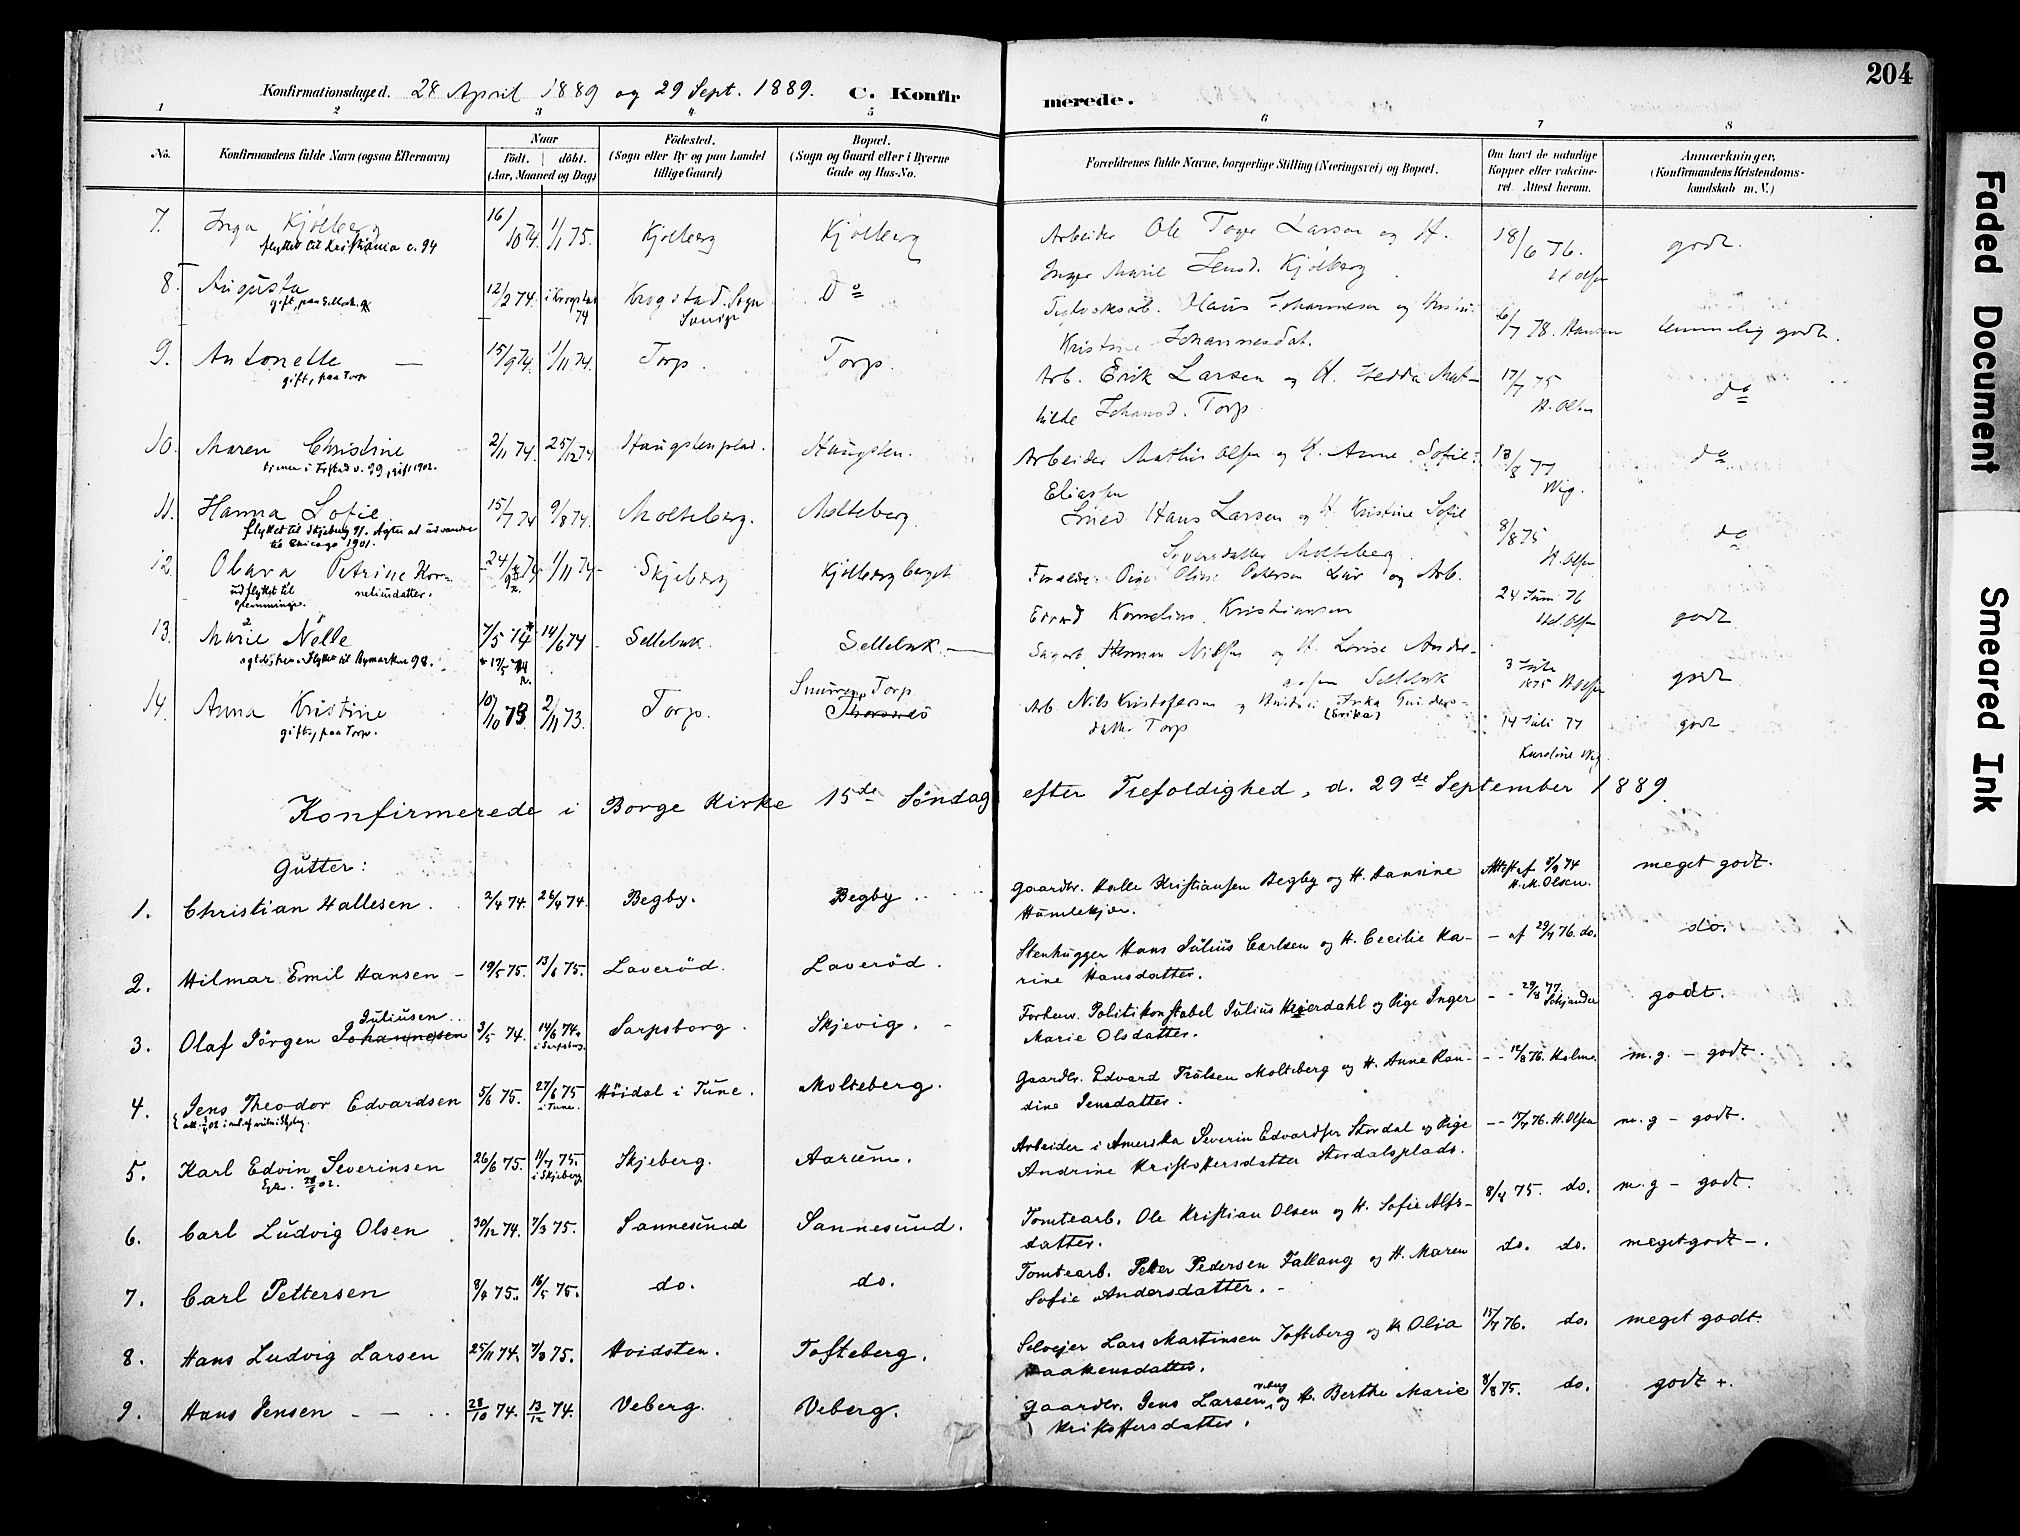 204
Konfirmationsdage d. 28 April 1889 og 29 Sept. 1889. C. Konfirmerede.
1 2 3 4 5 6 7 8
No. Konfirmandens fulde Navn (ogsaa Efternavn) Naar Födt. döbt. (Aar, Maaned og Dag) Födested. (Sogn eller By og paa Landet tillige Gaard) Bopæl. (Sogn og Gaard eller i Byerne Gade og Hus-No. Forældrenes fulde Navne, borgerlige Stilling (Næringsvei) og Bopæl. Om havt de naturlige Kopper eller vakcineret. Attest herom. Anmærkninger. (Konfirmandens Kristendomskundskab m. V.)
7. Inga Kjölberg 16/10 74. 1/1 75. Kjölberg Kjölberg Arbeider Ole Larsen og H. 18/6 76. godt.
flyttet til Kristiania v. 94 Inger Marie Jensd. Kjölberg
8. Augusta 12/2 74. i Krogstad 74 Krogstad Sogn Do Johannesen og Hustru 6/7 78. Hansen temmelig godt.
Kristine Johannesdat.
9. Antonette — 15/9 74. 1/11 74. Torp. Torp. Arb. Erik Larsen og H. Hedda Mat- 17/7 75 do
gift, paa Torp hilde Johansd. Torp. H. Olsen
10. Maren Christine 2/11 74. 25/12 74 Haugstenplad. Haugsten. Arbeider Mathis Olsen og H. Anne Sofie 13/8 77 do
Eliassen Wig.
11. Hanna Sofie 15/7 74 9/8 74. Molteberg. Molteberg. Smed Hans Larsen og H. Kristine Sofie 8/8 75 do
flyttet til Skjeberg 91. Agter at udvandre til Chicago 1901. Siversdatter Molteberg. H. Olsen
12. Olava Petrine Korneliusdatter. 24/ 74 1/11 74 Skjeberg Kjölbergberget Pige Oline Petersen og Arb.
udflyttet til Glemminge. Kornelius Kristiansen 24 Juni 76 godt
13. Marie Nölle 7/5 74* 14/6 74 Sellebak Sellebak — Herman Nilsen og H. Lovise Andreasen Sellebak 3 Juli 1875 H. Olsen godt
14. Anna Kristine 10/10 73 2/11 73. Torp. Torp Thorsnes Arb. Nils Kristofersen og Hustru Irka (Erika) Gundersdatter Torp 14 Juli 77 godt
gift, paa Torp. Karoline Wig
Konfirmerede i Borge Kirke 15de Söndag efter Trefoldighed, d. 29de September 1889.
Gutter:
1. Christian Hallesen. 2/4 74. 26/4 74. Begby. Begby. Gaardbr. Halle Kristiansen Begby og H. Hansine Attest af 5/9 74 H.M. Olsen. meget godt.
Humlekjær.
2. Hilmar Emil Hansen – 19/5 75. 13/6 75. Laveröd. Laveröd. Stenhugger Hans Julius Carlsen og H. Cecilie Ka- – af 29/7 76. do. do.
rine Hansdatter.
3. Olaf Jörgen Johannesen Juliusen 3/5 74. 14/6 74. i Sarpsborg. Sarpsborg. Skjevig. – Forhenv. Politikonstabel Julius Kjerdahl og Pige Inger – - 29/8 77. godt.
Marie Olsdatter.
4. Jens Theodor Edvardsen 5/6 75. 27/6 75 i Tune. Höidal i Tune. Molteberg. Gaardbr. Edvard Trulsen Molteberg og H. Anne Ran- – - 12/8 76. Holme. m.g. – godt.
dine Jensdatter.
5. Karl Edvin Severinsen 26/6 75. 11/7 75. i Skjeberg. Skjeberg. Aarum. Arbeider i Amerika Severin Edvardsen Stordal og Pige – - 17/7 76. H. Olsen m.g – godt.
Andrine Kristoffersdatter Stordalsplads.
6. Carl Ludvig Olsen 30/12 74. 7/3 75. Sannesund Sannesund. Tomtearb. Ole Kristian Olsen og H. Sofie Alfs- 8/8 75. do. m.g – godt.
datter.
7. Carl Pettersen 8/4 75. 16/5 75. do. do. Tomtearb. Peter Pedersen Fallang og H. Maren do. do. meget godt –.
Sofie Andersdatter. –
8. Hans Ludvig Larsen 25/11 74. 7/3 75. Hvidsten. Tofteberg. Selveier Lars Martinsen Tofteberg og H Olia 15/7 76. do. meget godt.
Haakensdatter.
9. Hans Jensen – — . . 28/10 74. 13/12 74. Veberg. Veberg. Gaardbr. Jens Larsen Veberg og H. Berthe Marie 8/8 75. do. godt +.
Kristoffersdatter.
Faded Document
Smeared Ink